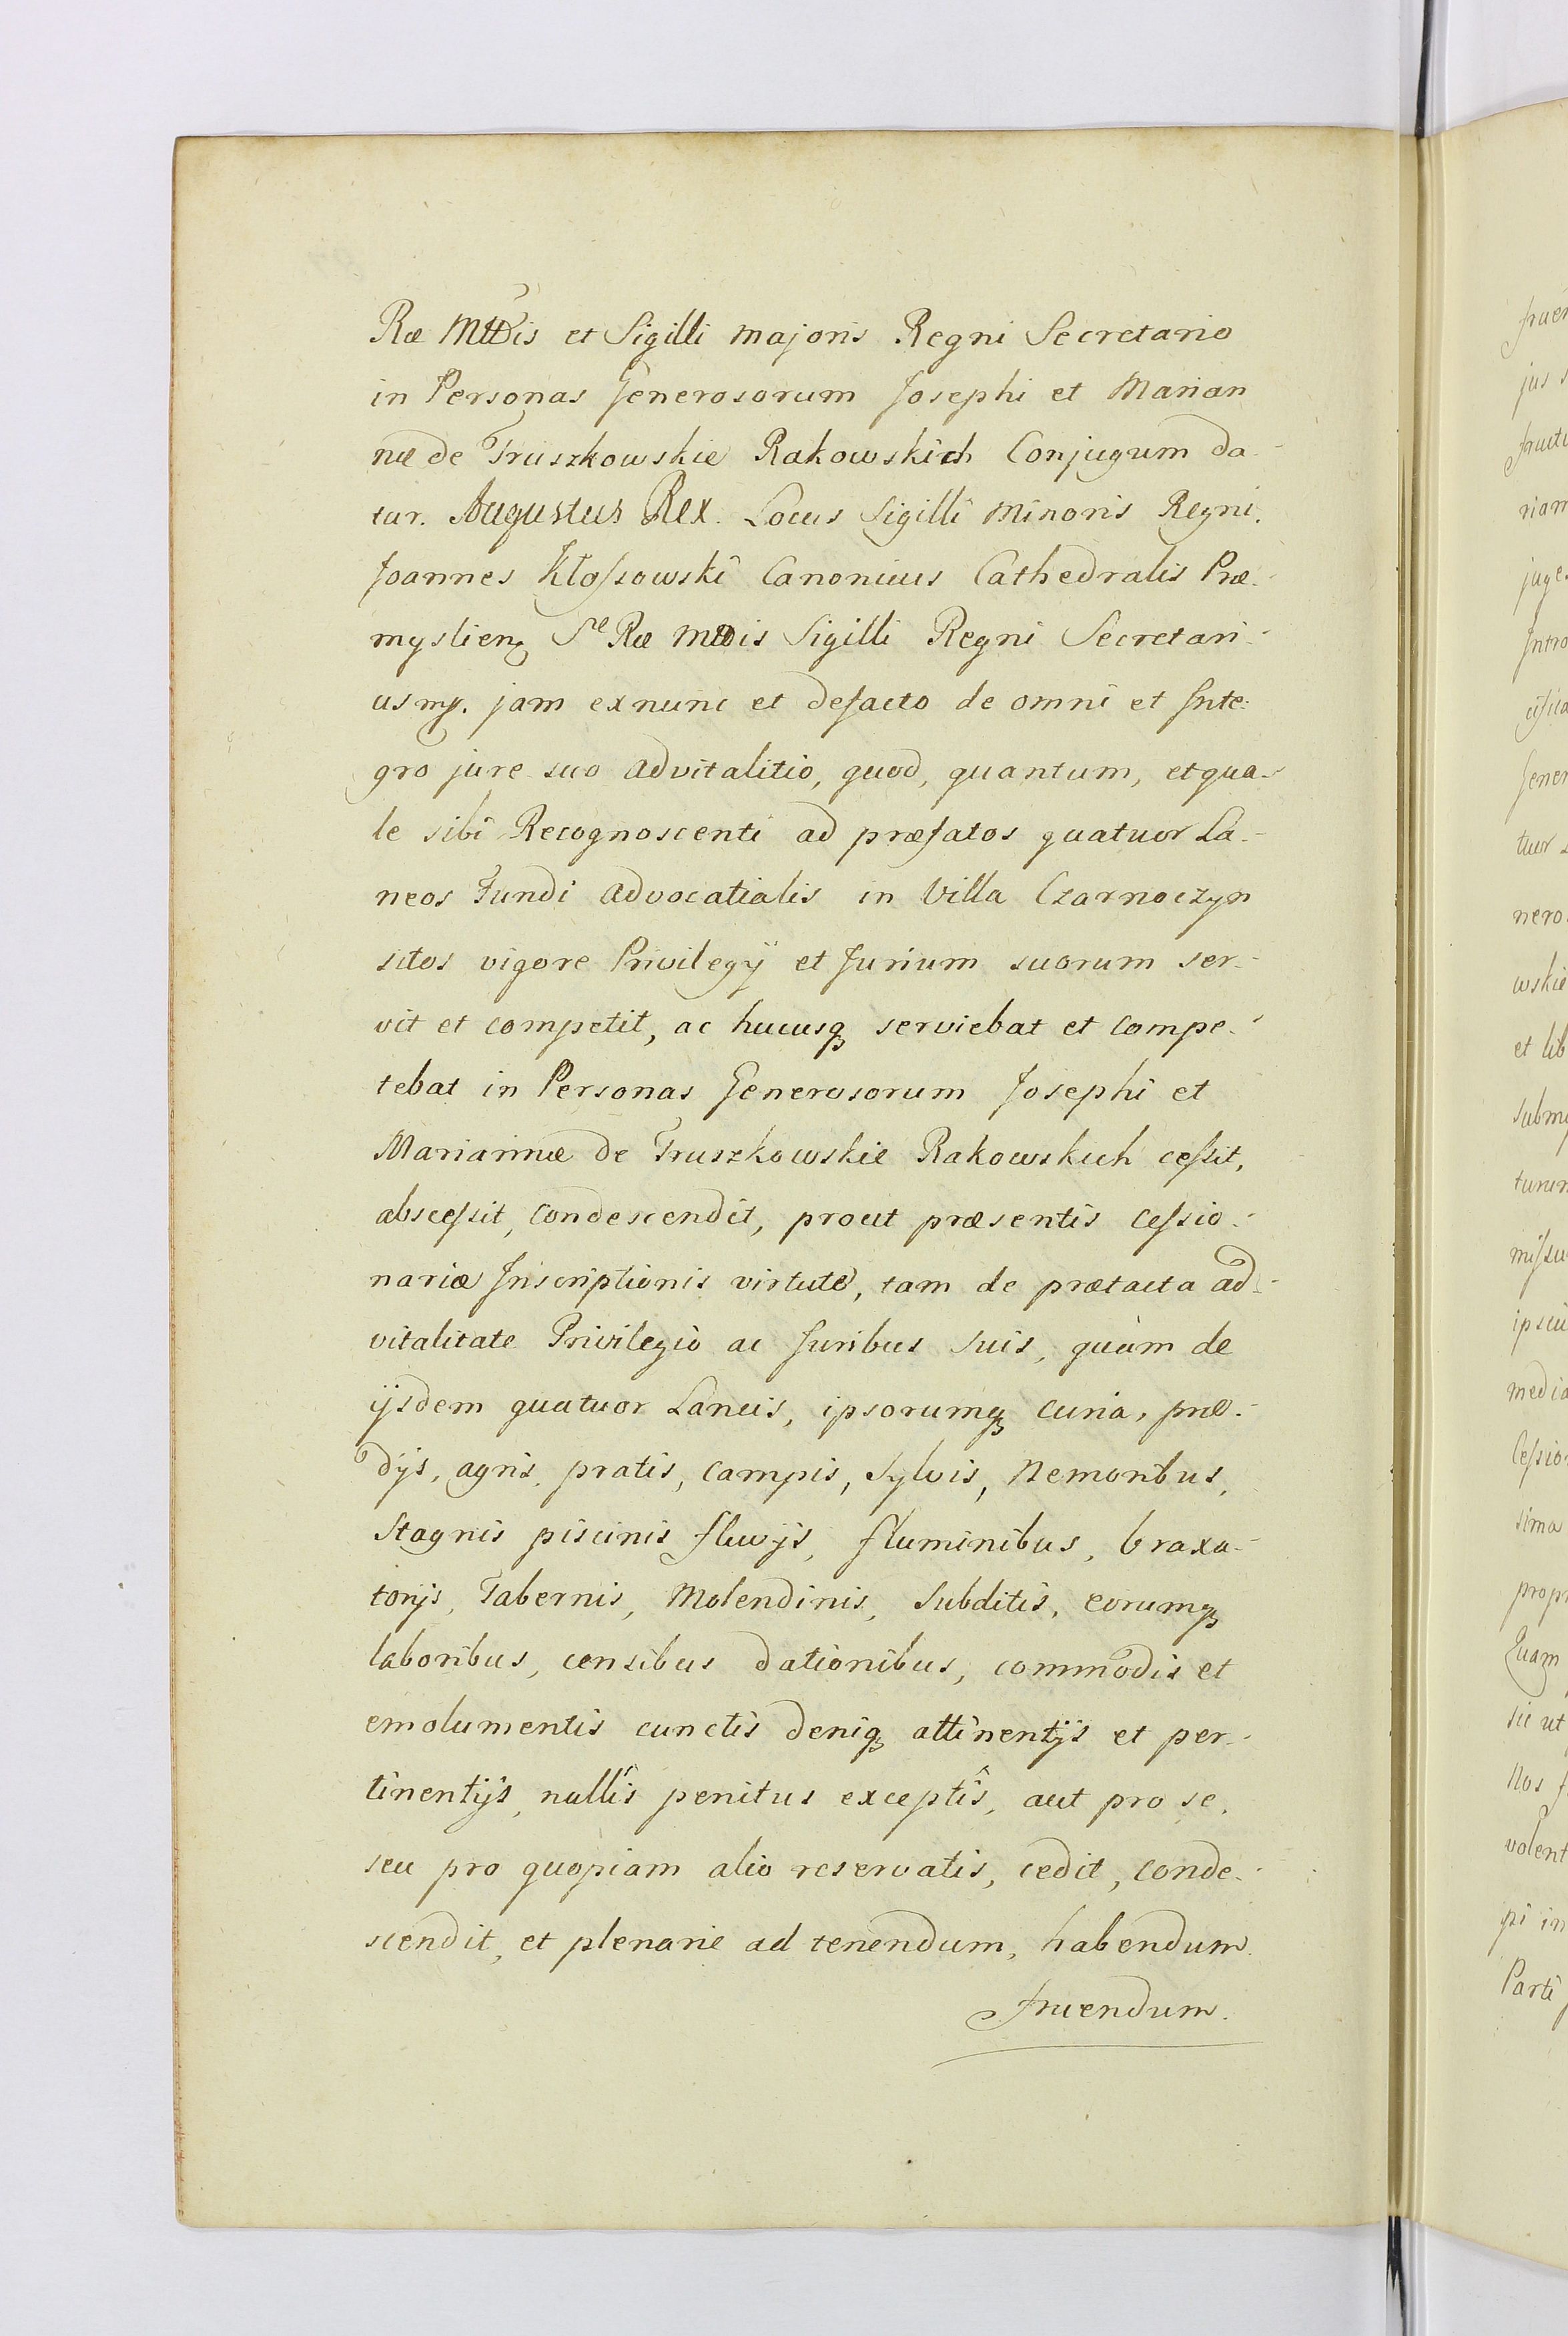 Ræ Mttis et Sigilli majoris Regni Secretario
in Personas Generosorum Josephi et Marian
næ de Truszkowskie Rakowskich Conjugum da-
tur. Augustus Rex. Locus Sigilli minoris Regni.
Joannes Kłoſsowski Canonicus Cathedralis Præ-
myslienꝫ Sæ Ræ Mttis Sigilli Regni Secretari-
us mp. jam ex nunc et defacto de omni et Inte-
gro jure suo advitalitio, quod, quantum, et qua-
le sibi Recognoscenti ad præfatos quatuor La-
neos Fundi advocatialis in Villa Czarnoczyn
sitos vigore Privilegÿ et Jurium suorum ser-
vit et competit, ac hucusqꝫ serviebat et compe-
tebat in Personas Generosorum Josephi et
Mariannæ de Truszkowskie Rakowskich ceſsit,
absceſsit, condescendit, prout præsentis Ceſsio-
nariæ Inscriptionis virtute, tam de prætacta ad-
vitalitate Privilegio ac Juribus suis, quàm de
ijsdem quatuor Laneis, ipsorumqꝫ curia, præ-
dijs, agris, pratis, campis, sylvis, Nemoribus,
Stagnis piscinis fluvijs, fluminibus, braxa-
torijs, Tabernis, Molendinis, Subditis, eorumqꝫ
laboribus, censibus dationibus, commodis et
emolumentis cunctis deniqꝫ attinentijs et per-
tinentijs, nullis penitus exceptis, aut pro se,
seu pro quopiam alio reservatis, cedit, conde-
scendit, et plenarie ad tenendum, habendum
fruendum.
fruen
jus s
fructu
riam
juge
Intro
Gener
tuor
nero
wskie
et lib
subm
ipsiu
media
Ceſsio
sima
propr
Quam
sic ut
Nos
volent
pi in
Parti